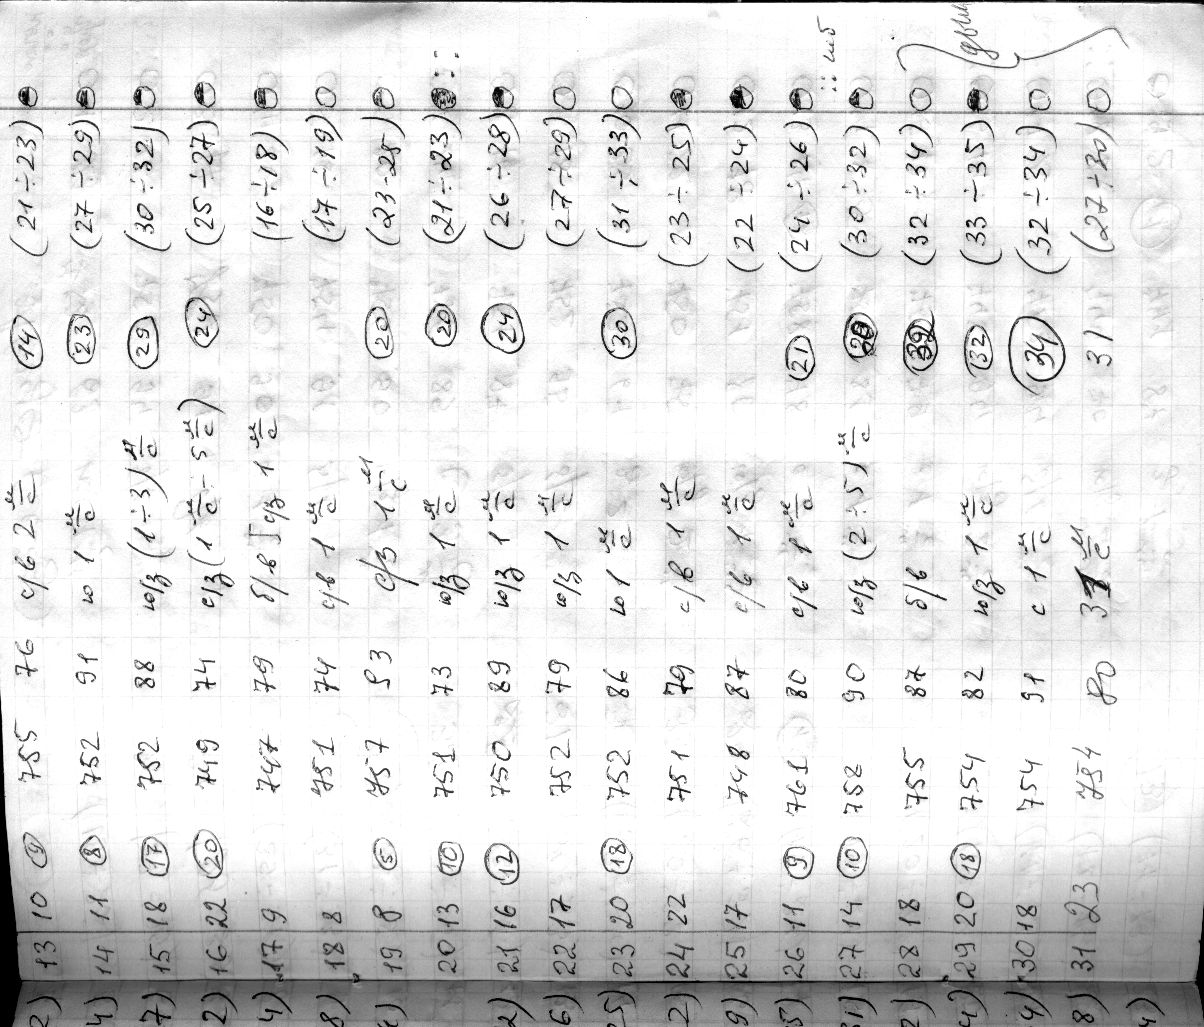 13 10 (9) 755 76 с/в 2 м/с (14) (21÷23)
14 11 (8) 752 91 ю 1 м/с (23) (27÷29)
15 18 (17) 752 88 ю/з (1÷3) м/с (29) (30÷32)
16 22 (20) 749 74 с/з (1 м/с ÷ 5 м/с) (24) (25÷27)
17 9 747 79 б/в с/з 1 м/с (16÷18)
18 8 751 74 с/в 1 м/с (17÷19)
19 8 (5) 757 53 с/з 1 м/с (20) (23-25)
20 13 (10) 751 73 ю/з 1 м/с (20) (21÷23)
21 16 (12) 750 89 ю/з 1 м/с (24) (26÷28)
22 17 752 79 ю/з 1 м/с (27÷29)
23 20 (18) 752 86 ю 1 м/с (30) (31÷33)
24 22 751 79 с/в 1 м/с (23÷25)
25 17 748 87 с/в 1 м/с (22÷24)
26 11 (9) 761 80 с/в 1 м/с (21) (24÷26)
27 14 (10) 758 90 ю/з (2÷5) м/с (30÷32)
28 18 755 87 б/в (32÷34)
29 20 (18) 754 82 ю/з 1 м/с (32) (33÷35)
30 18 754 91 с 1 м/с (34) (32÷34)
31 23 754 80 м/с 31 (27÷30)